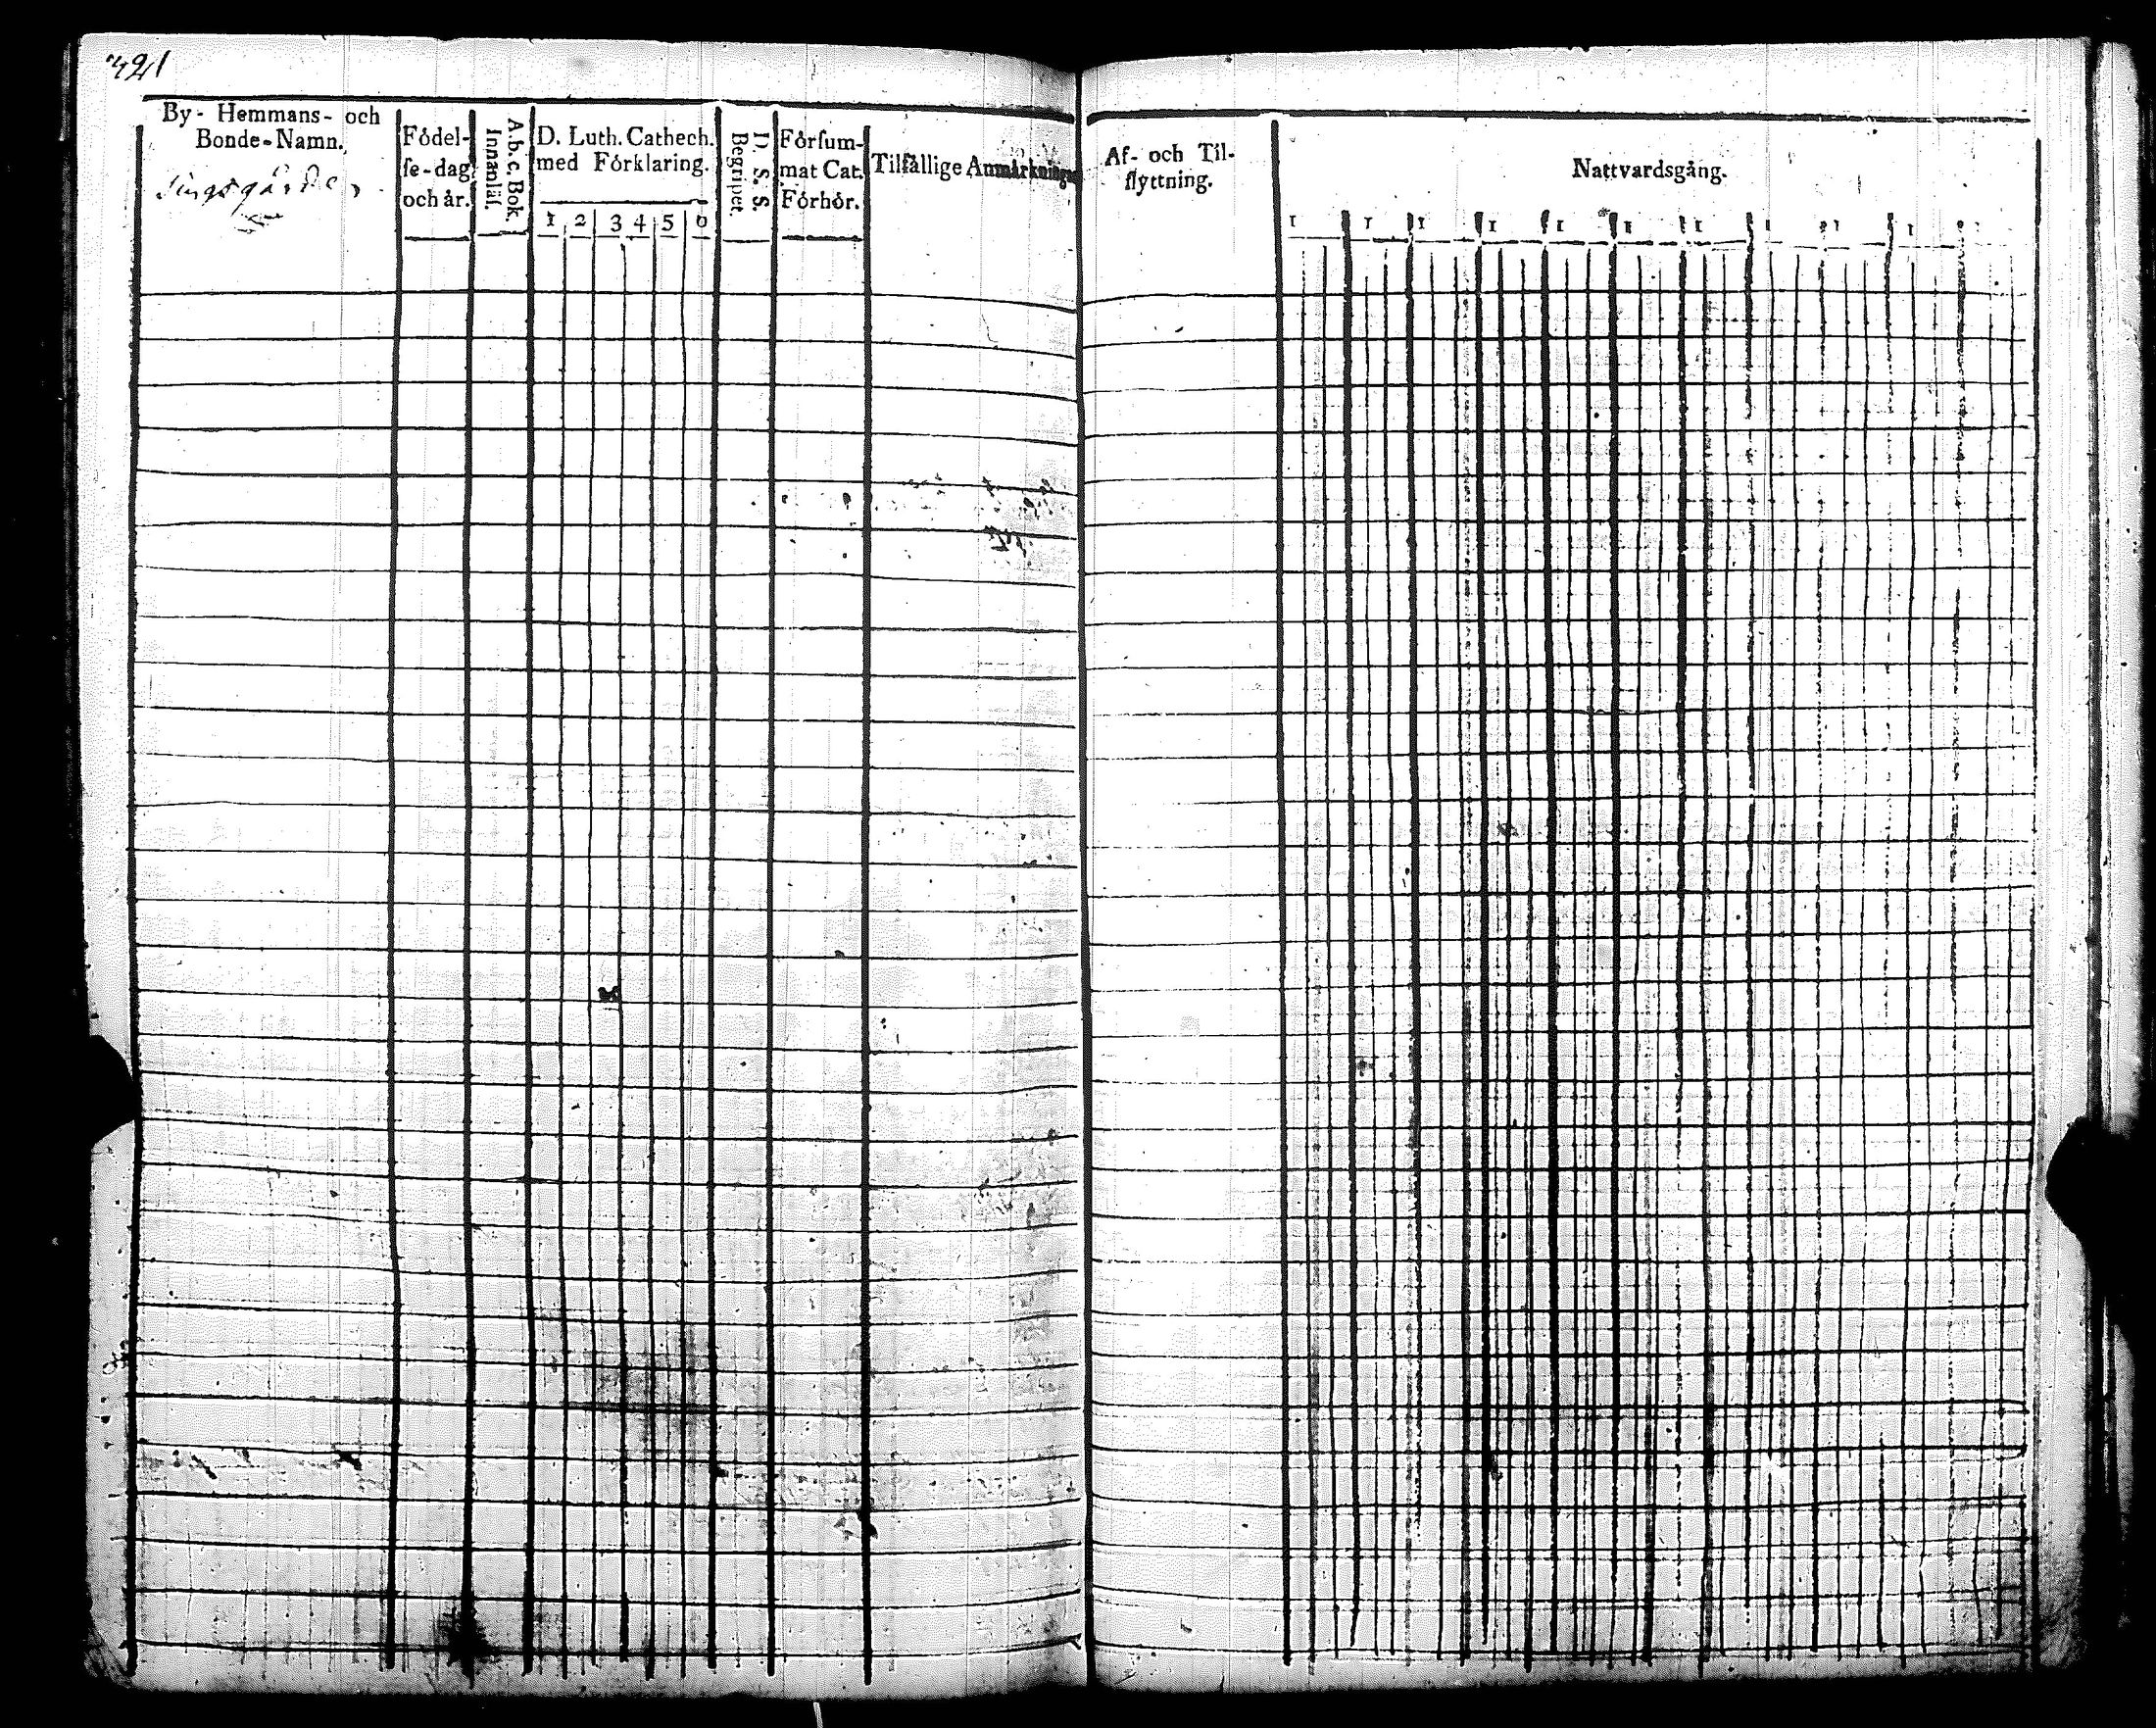 421
By- Hemmans- och
Bonde-Namn.
Födel-
se-dag
och år.
A.b.c. Bok.
Innanläs.
D. Luth. Cathech.
med Förklaring.
1 2 3 4 5 6
D. S. S.
Begripet.
Försum-
mat Cat.
Förhör.
Tilfällige Anmärkningar
Af- och Til-
flyttning.
Nattvardsgång.
1 1 1 1 1 1 1